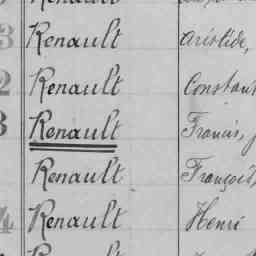 3 Renault Aristide,
2 Renault Constant
3 Renault Francis,
Renault François,
4 Renault Henri